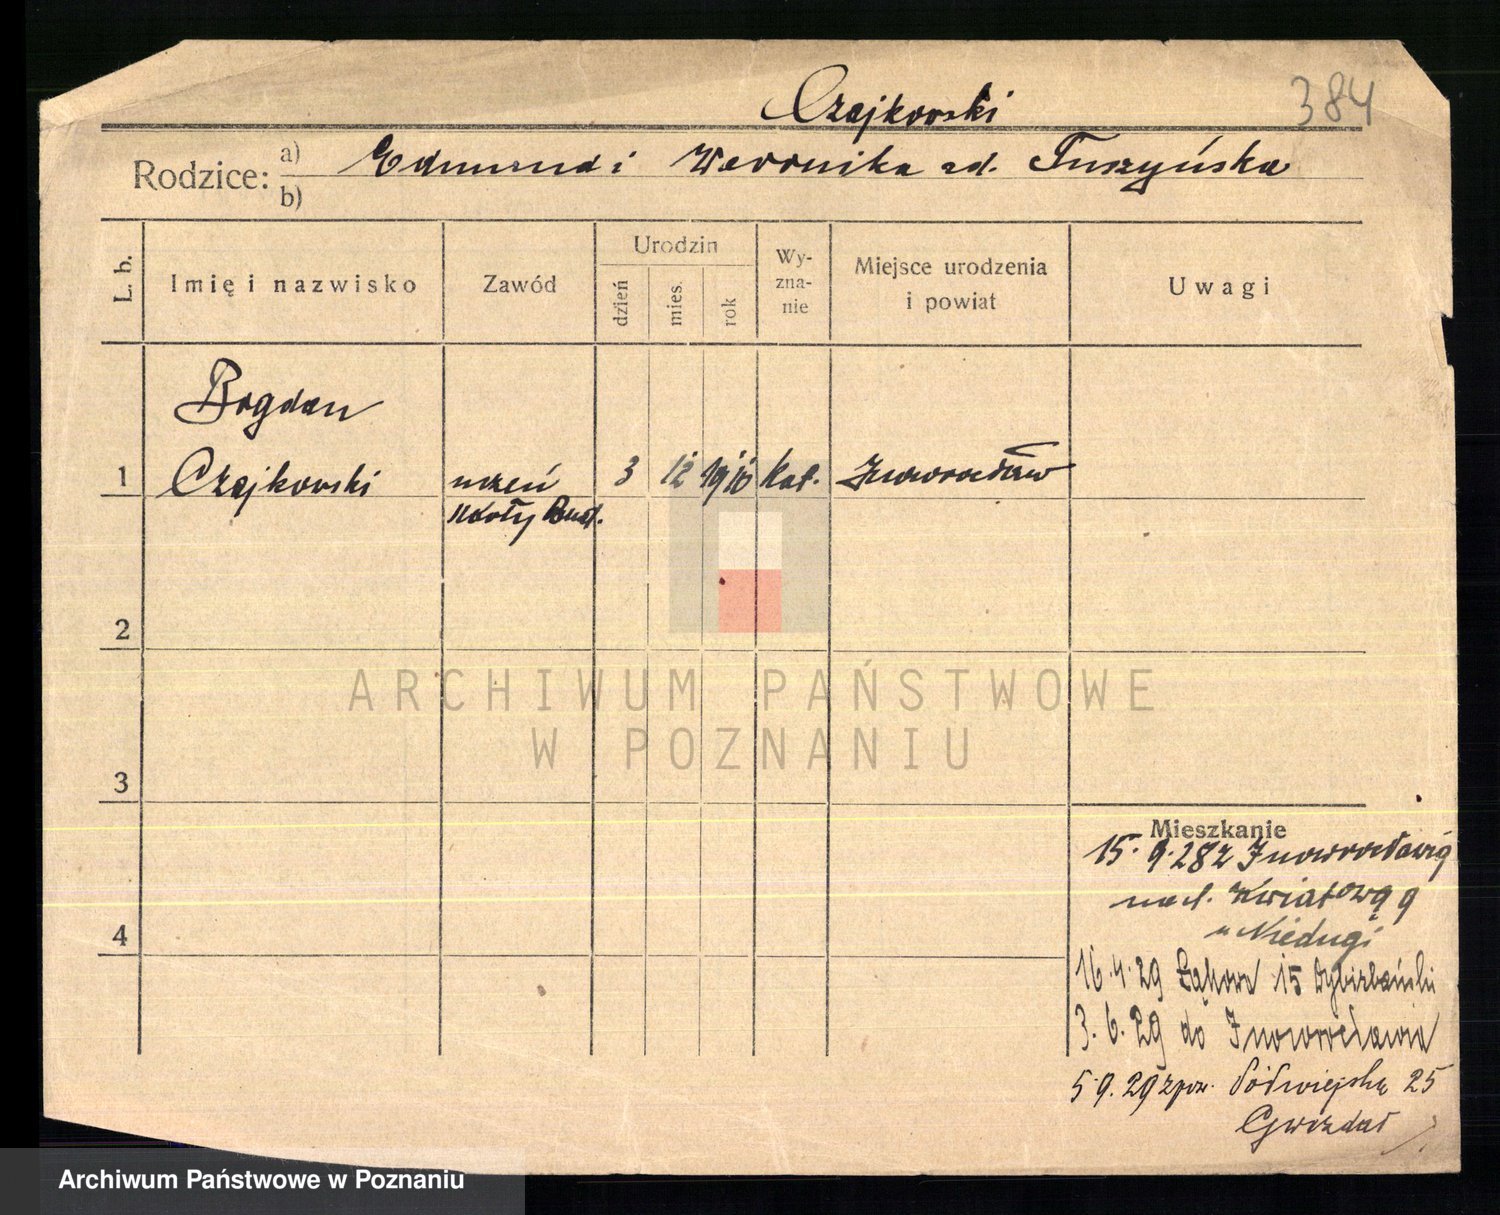 Czajkowski 384
Rodzice: a) Edmund i Weronika zd. Tuszyńska
b)
L. b. Imię i nazwisko Zawód Urodzin dzień mies. rok Wy-zna-nie Miejsce urodzenia i powiat Uwagi
Bogdan
1 Czajkowski uczeń 3 12 1910 kat. Inowrocław
szkoły Bud.
2
ARCHIWUM PAŃSTWOWE
W POZNANIU
3
Mieszkanie
15.9.28 z Inowrocławia
na ul. Kwiatową 9
16.4.29 Łąkowa 15
3.6.29 do Inowrocławia
4
5.9.29 z pow. Półwiejska 25
Gwizdał
Archiwum Państwowe w Poznaniu